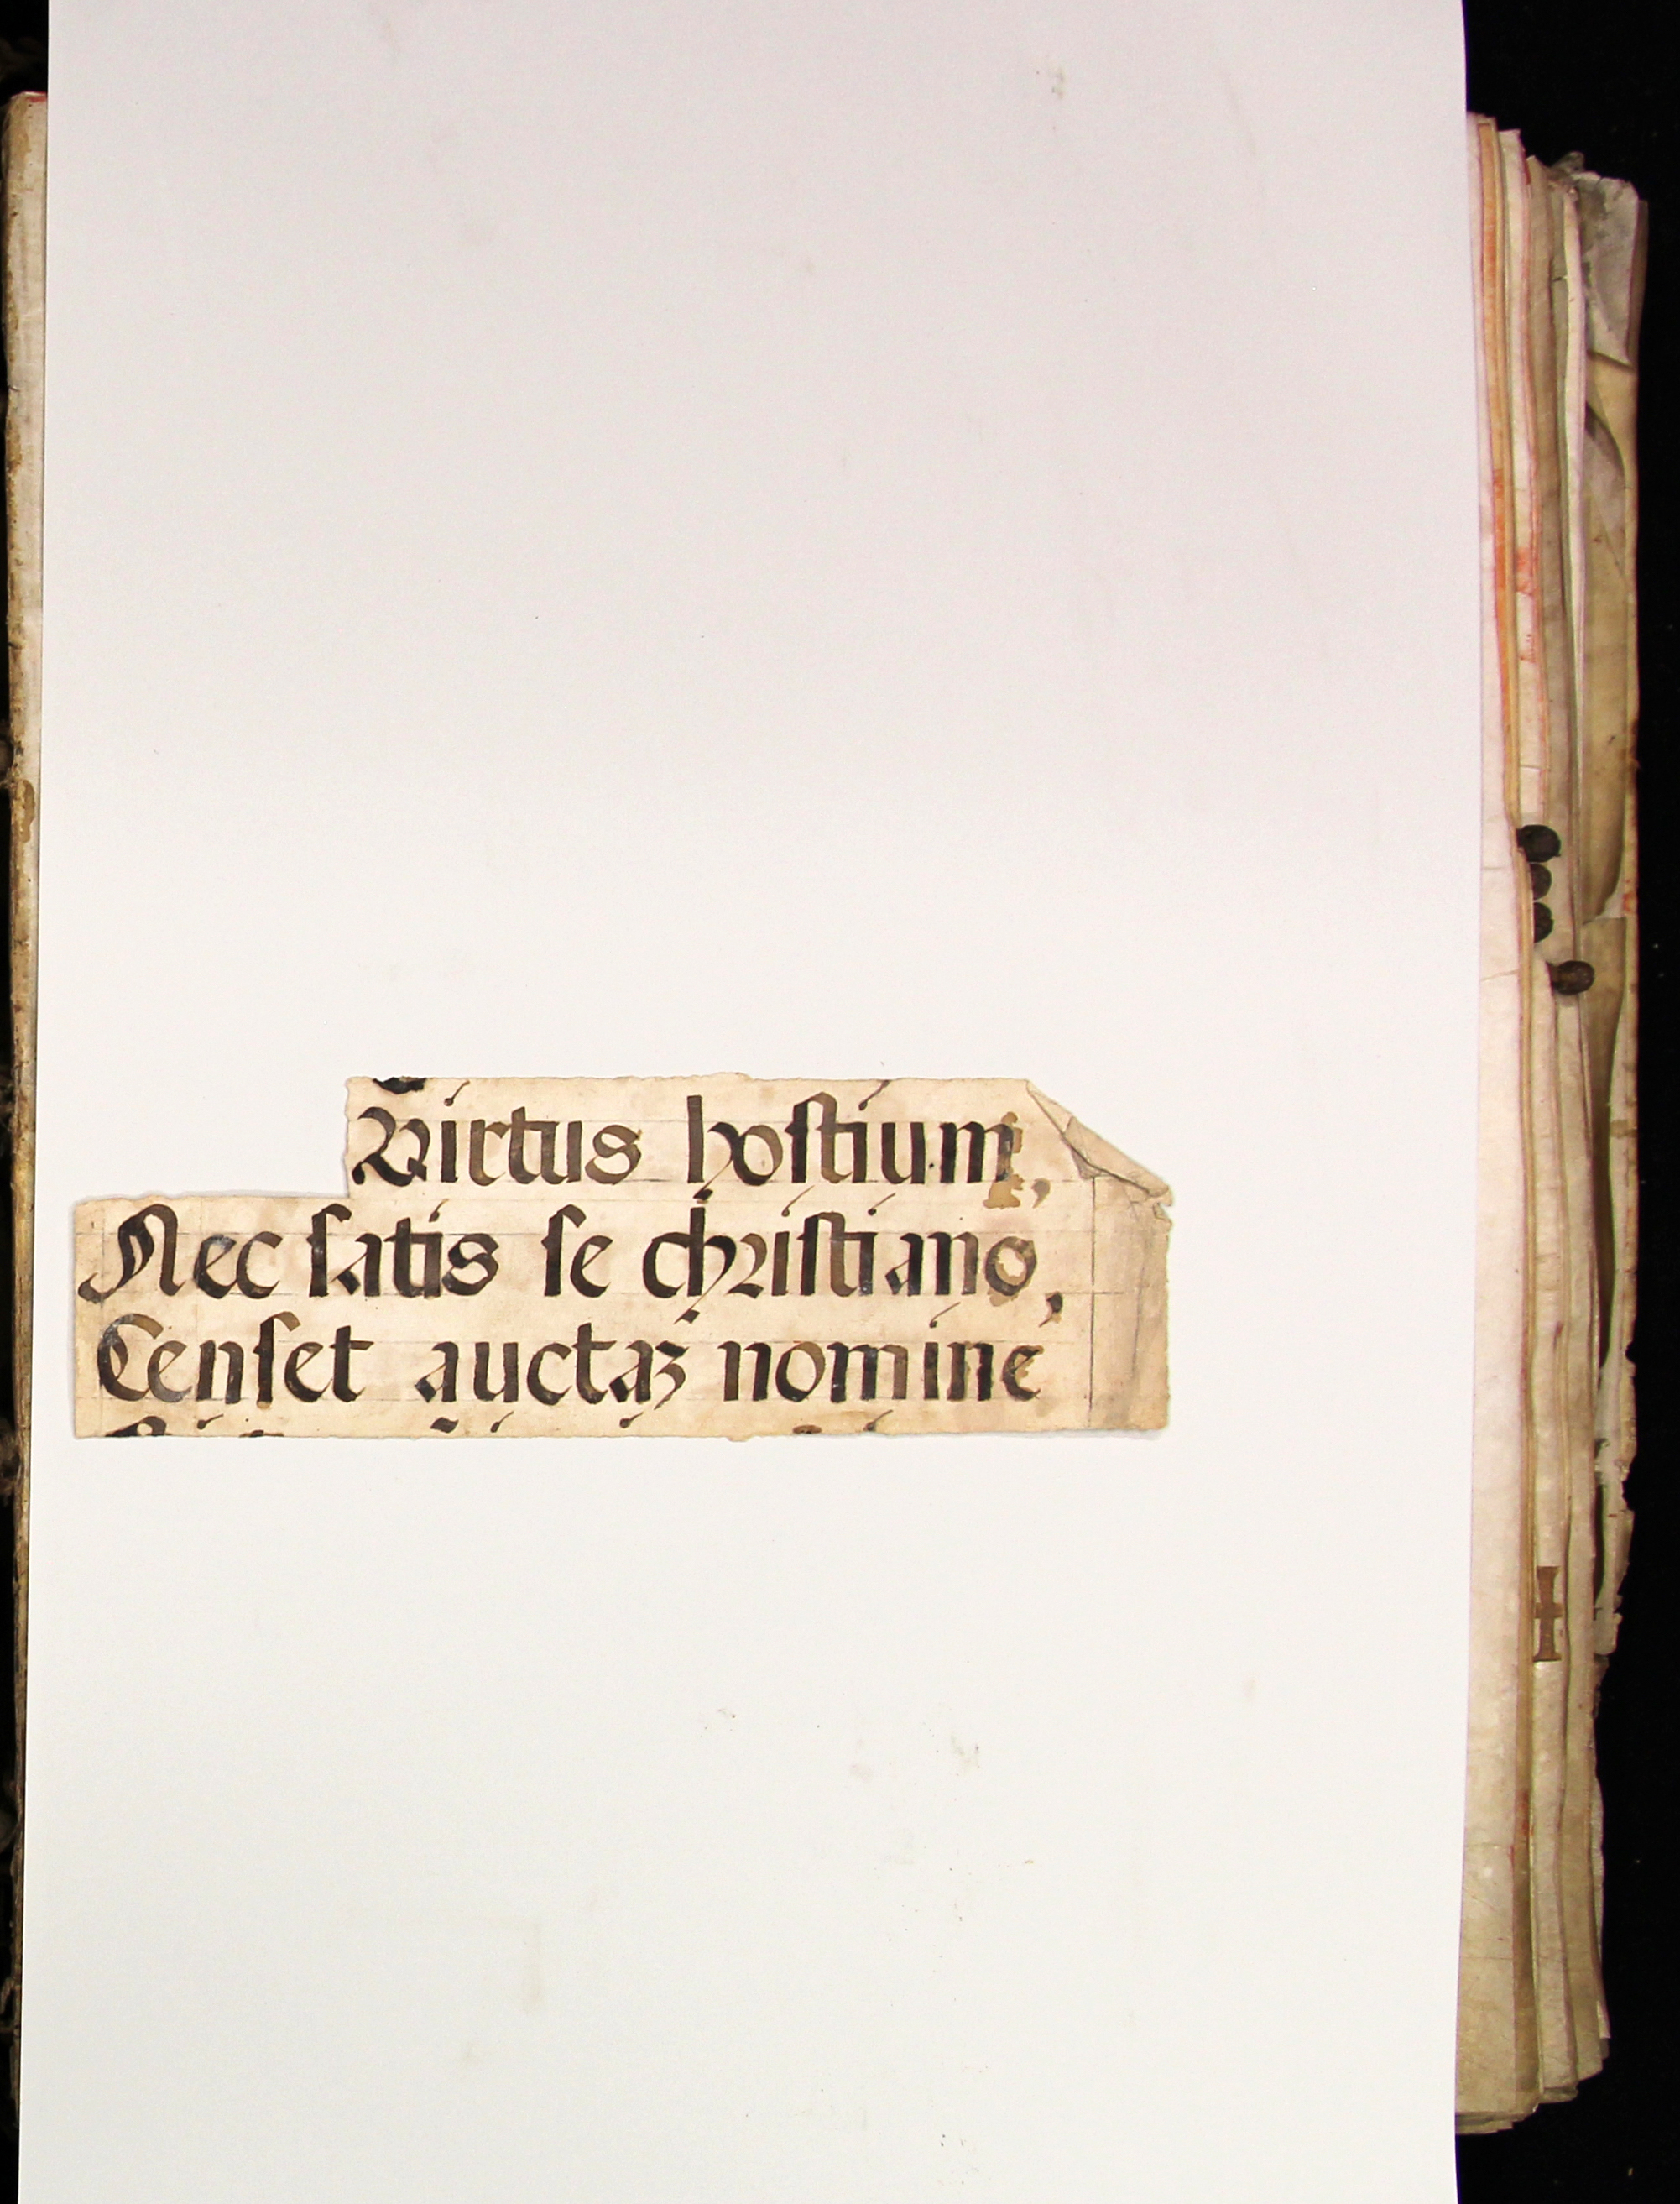 Virtus hostium,
Nec satis se christiano,
Censet auctaꝫ nomine